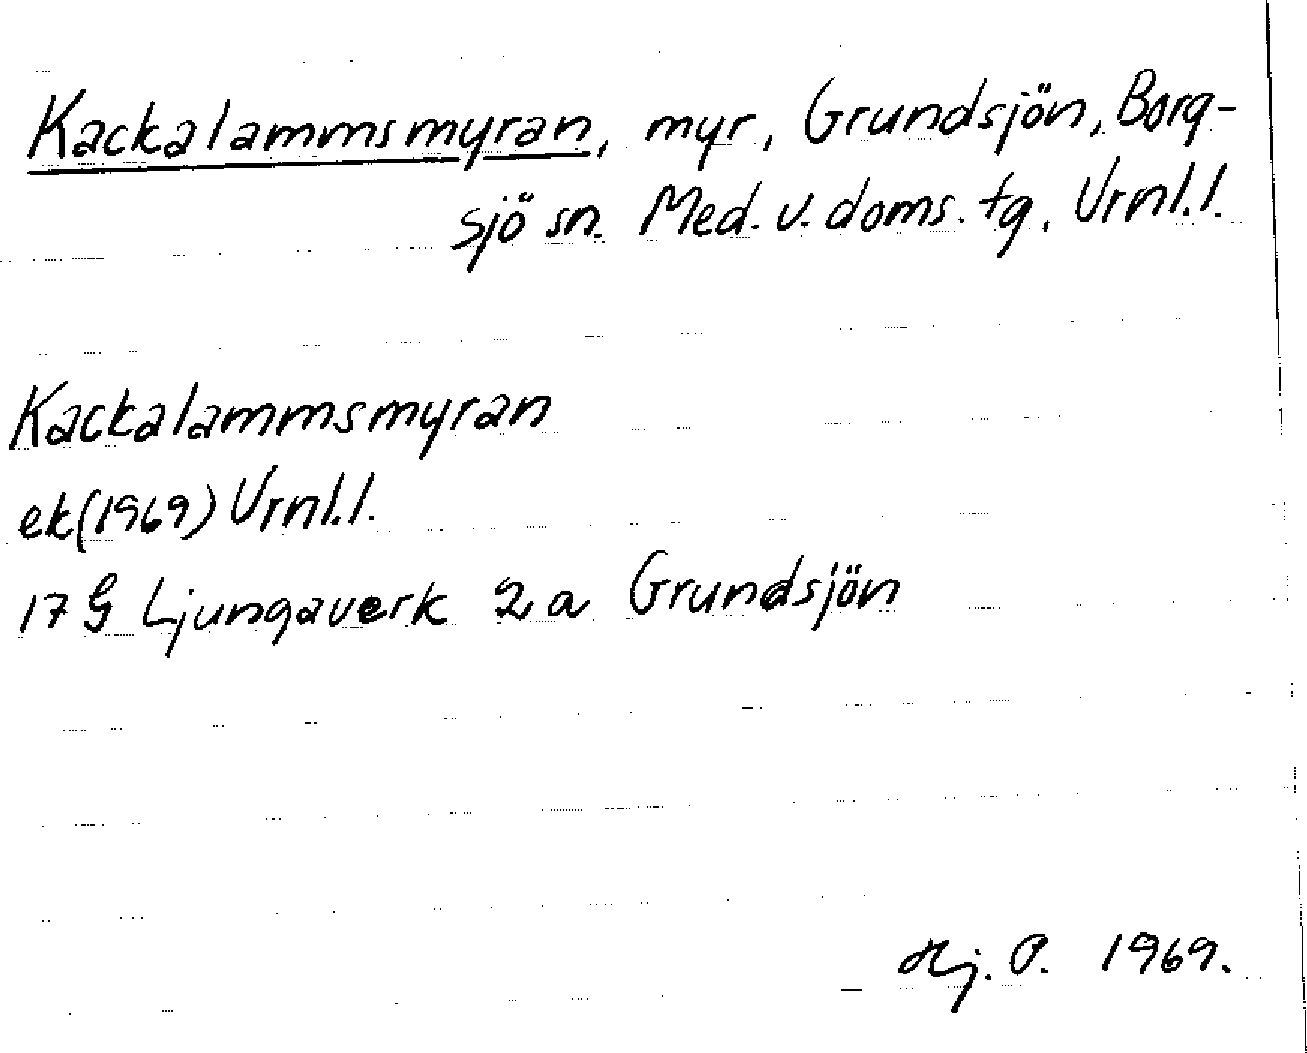 Kackalammsmyran, myr, Grundsjön, Borg-
sjö sn. Med. v. doms. tg, Vrnl.l.
Kackalammsmyran
ek (1969) Vrnl.l.
17 G Ljungaverk 2 a Grundsjön
Hj. P. 1969.